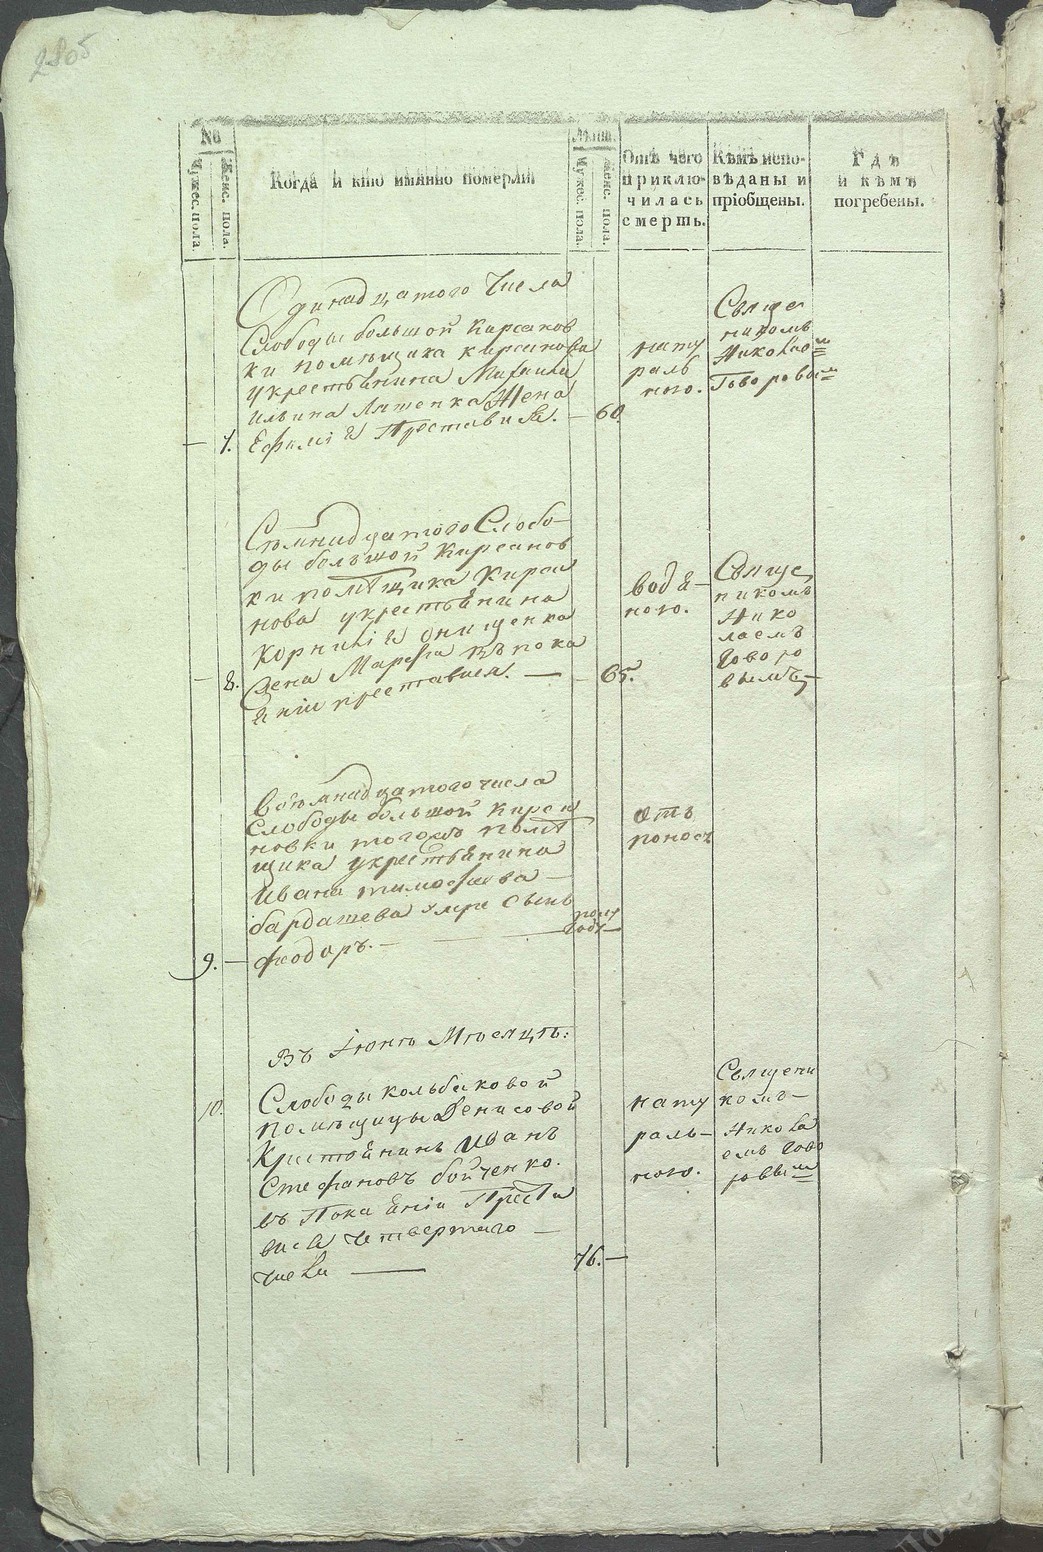 280б
№
Мужес. пола.
Женс. пола.
Когда и кто имянно померли
Лѣта
Мужес. пола.
Женс. пола.
Отъ чего
приклю-
чилась
смерть.
Кѣмъ испо-
вѣданы и
пріобщены.
Гдѣ
и кѣмъ
погребены.
Одинадцатого Числа
Слободы большой Кирсанов
ки помѣщика кирсанова
укрестьянина Михаила
Ильина Жена
7. Ефимія Преставися. — 60.
нату
раль
ного.
Свяще
никомъ
Николаем
Говоровым
Семнадцатого Слобо-
ды большой Кирсанов
ки помѣщика Кирса
нова укрестьянина
Корнилія Онищенка
8. Жена Марфа Въ пока
яніи преставися. — 65.
водя-
ного.
Свяще
никомъ
Нико
лаемъ
Говоро
вымъ
Восемнадцатого числа
Слободы большой Кирса
новки тогожъ помѣ
щика укрестьянина
Ивана тимофѣева
бардашева умре Сынъ
полу
года
9. — феодоръ. —
отъ
поноса
Въ Іюнѣ Мѣсяцѣ:
10.
Слободы кольбаковой
помѣщицы Денисовой
Кристьянинъ Иванъ
Стефановъ бойченко.
въ Покаяніи Преста
вися Четвертаго —
числа — 76. —
нату
раль-
ного.
Священи
комъ-
Никола
емъ Гово
ровым